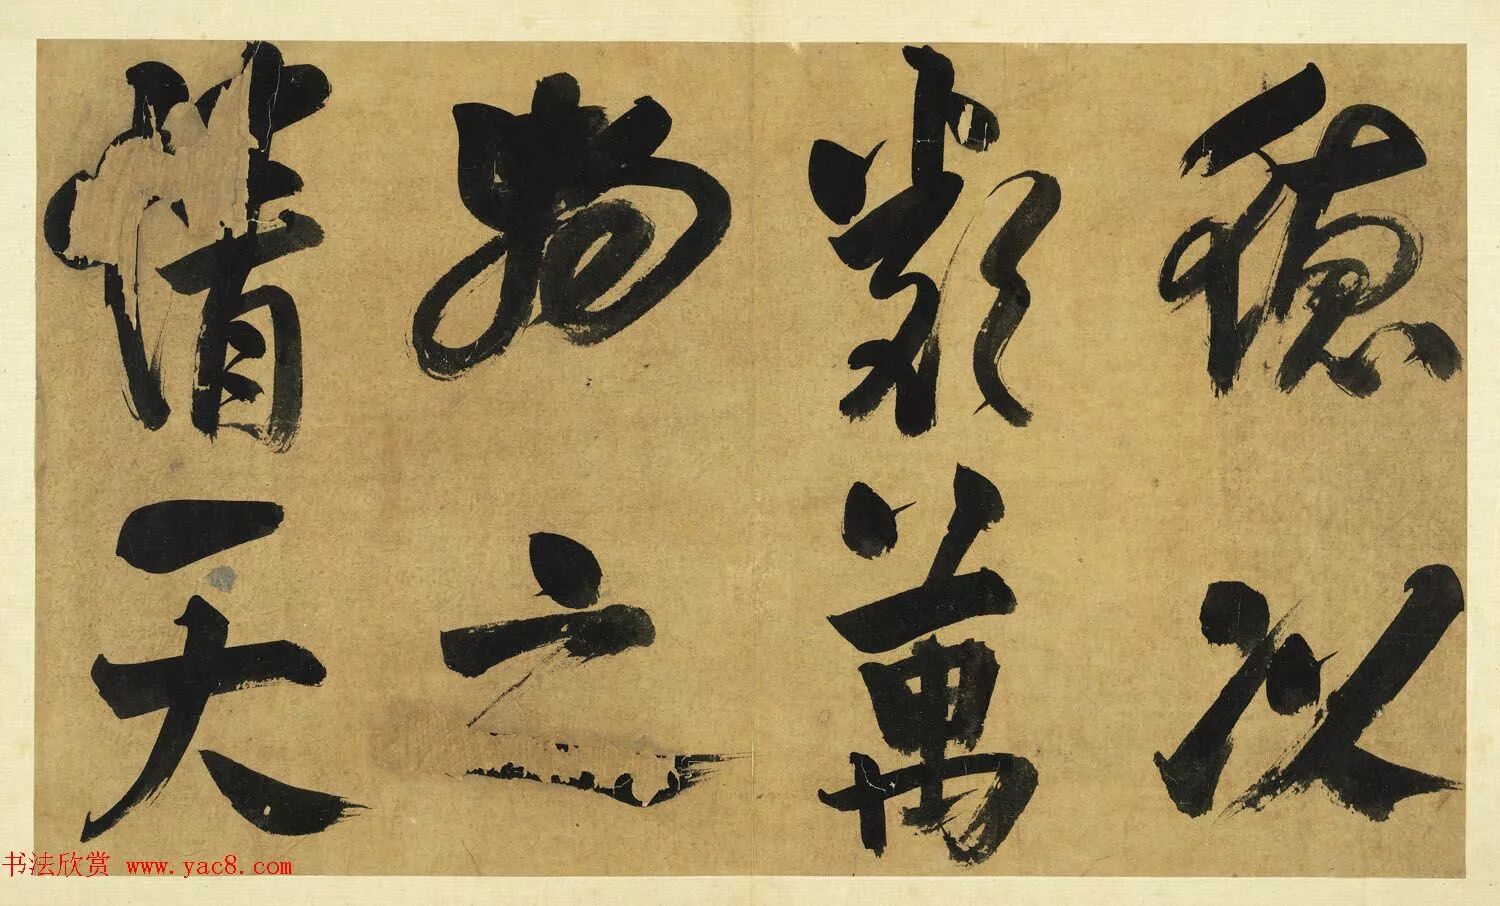 德以
類萬
物之
情天
书法欣赏 www.yac8.com